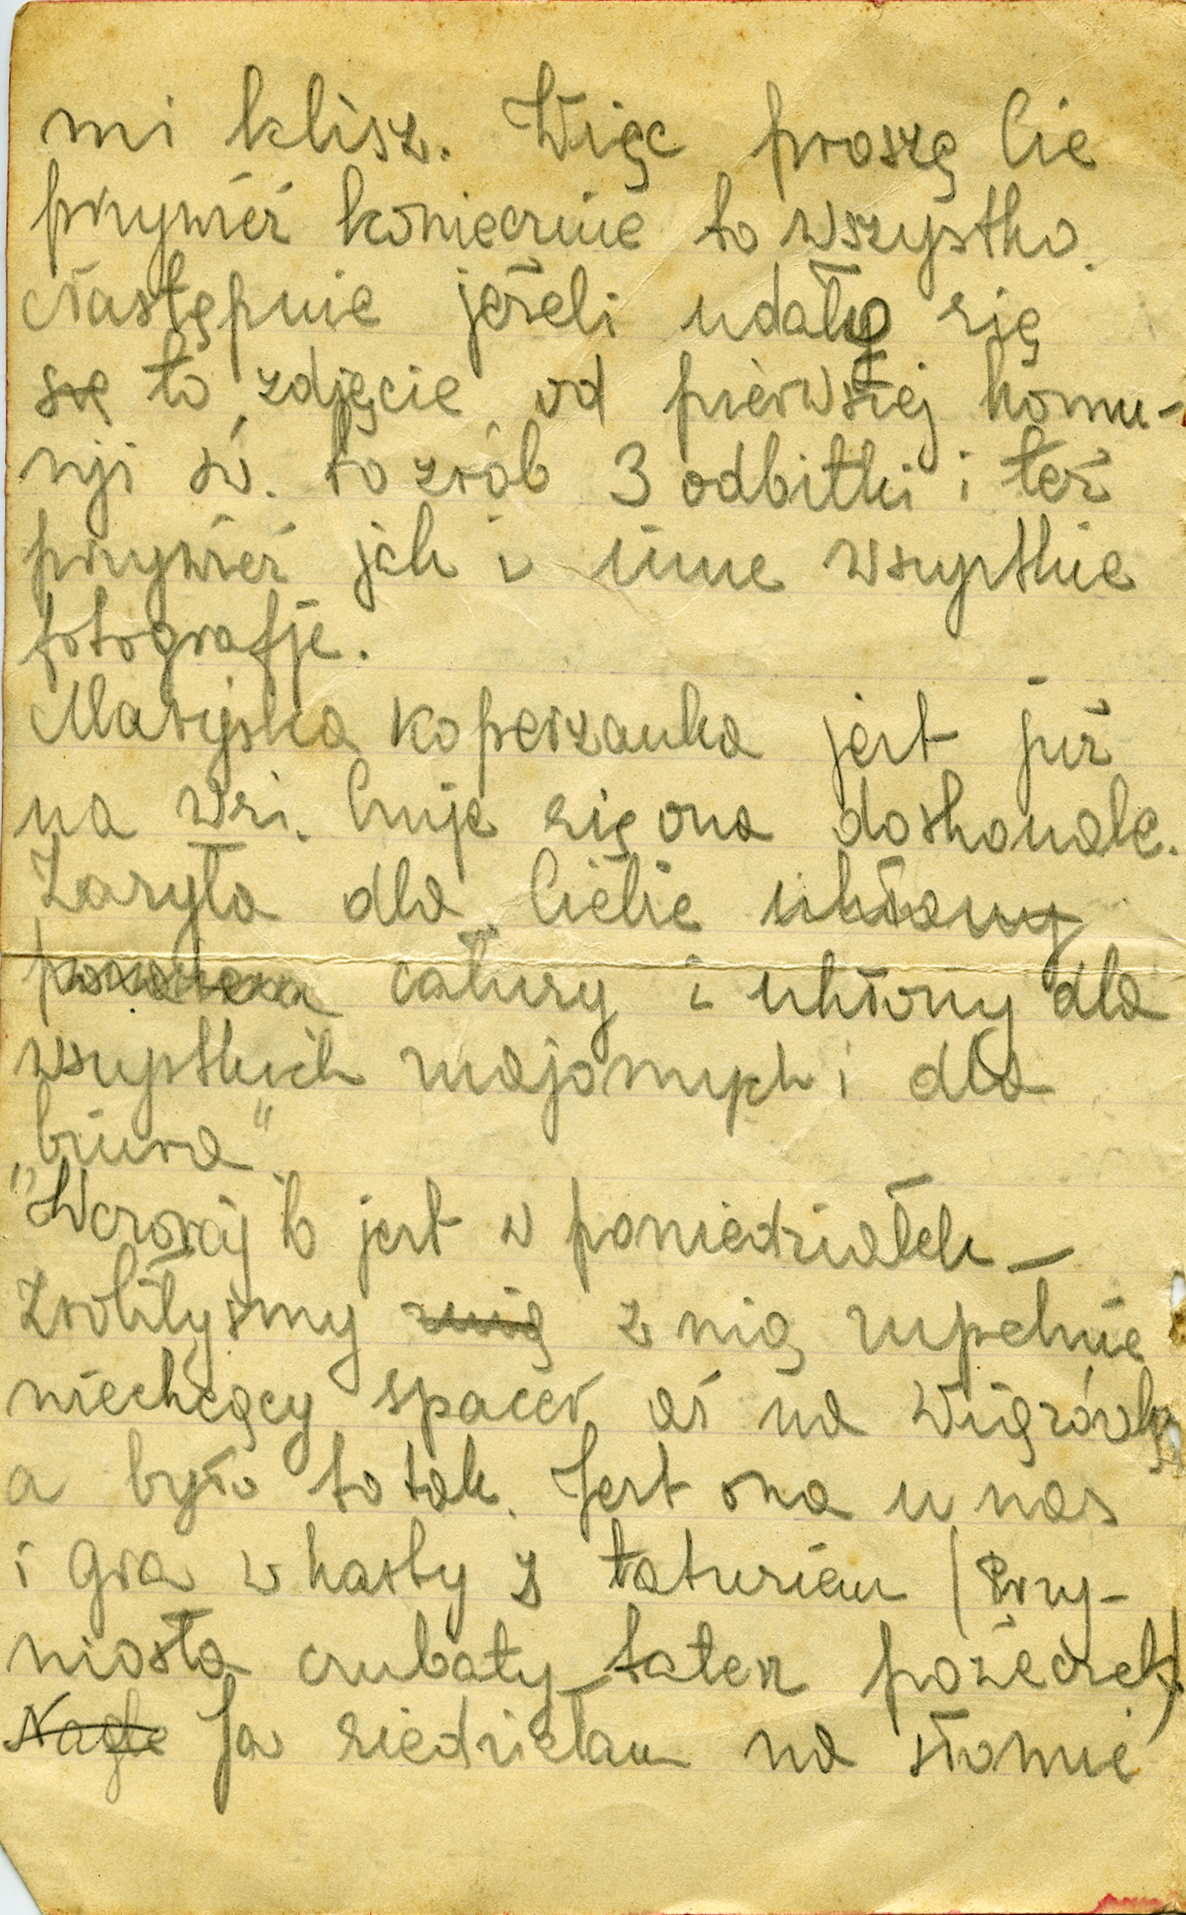 mi klisz. Więc proszę Cie
przywieź koniecznie to wszystko.
Następnie jeżeli udały się
się to zdjęcie od pierwszej komu-
nji św. to zrób 3 odbitki i też
przywieź jch i inne wszystkie
fotografje.
Maryśka Koperzanka jest już
na wsi. Czuje się ona doskonale.
Załączyła dla Ciebie ukłony
całusy i ukłony dla
wszystkich znajomych i dla
„biura".
Wczoraj to jest w poniedziałek —
Zrobiłyśmy z nią zupełnie
niechcący spacer aż na Wigrówkę
a było to tak. Jest ona u nas
i gra w karty z tatusiem (Przy-
niosła czubaty talerz pożeczek)
Nagle Ja siedziałam na słomie